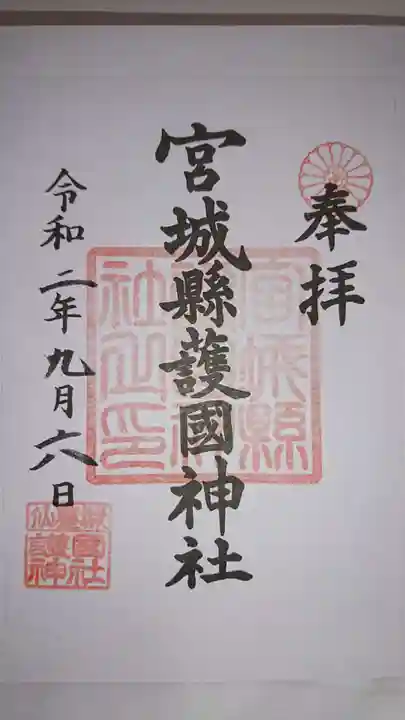 奉拝
宮城縣護國神社
令和二年九月六日
宮城縣護國神社之印